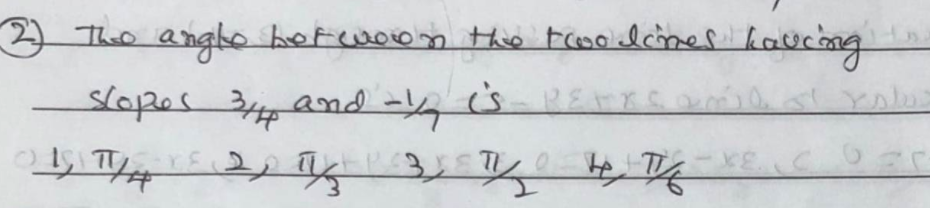 2) The angle between the two lines having
slopes 3/4 and -1/7 is
1, π/4 2, π/3 3, π/2 4, π/6